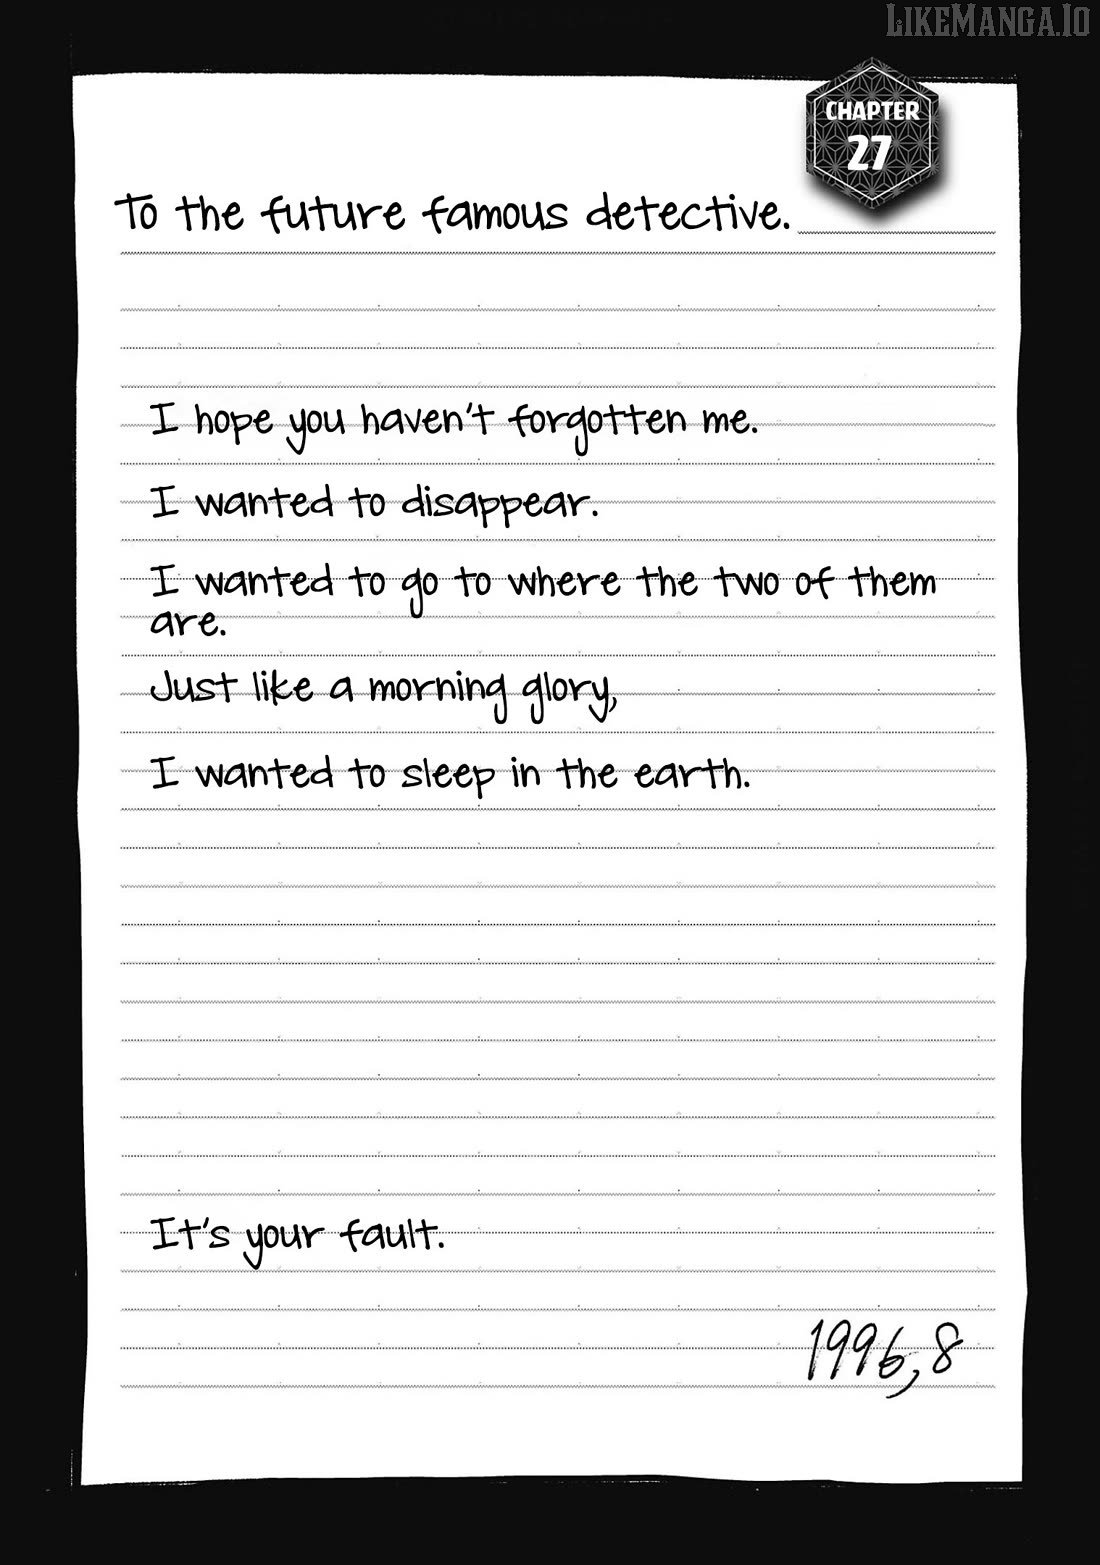 LIKEMANGA.IO
CHAPTER
27
To the future famous detective.
I hope you haven't forgotten me.
I wanted to disappear.
I wanted to go to where the two of them
are.
Just like a morning glory,
I wanted to sleep in the earth.
It's your fault.
1996,8